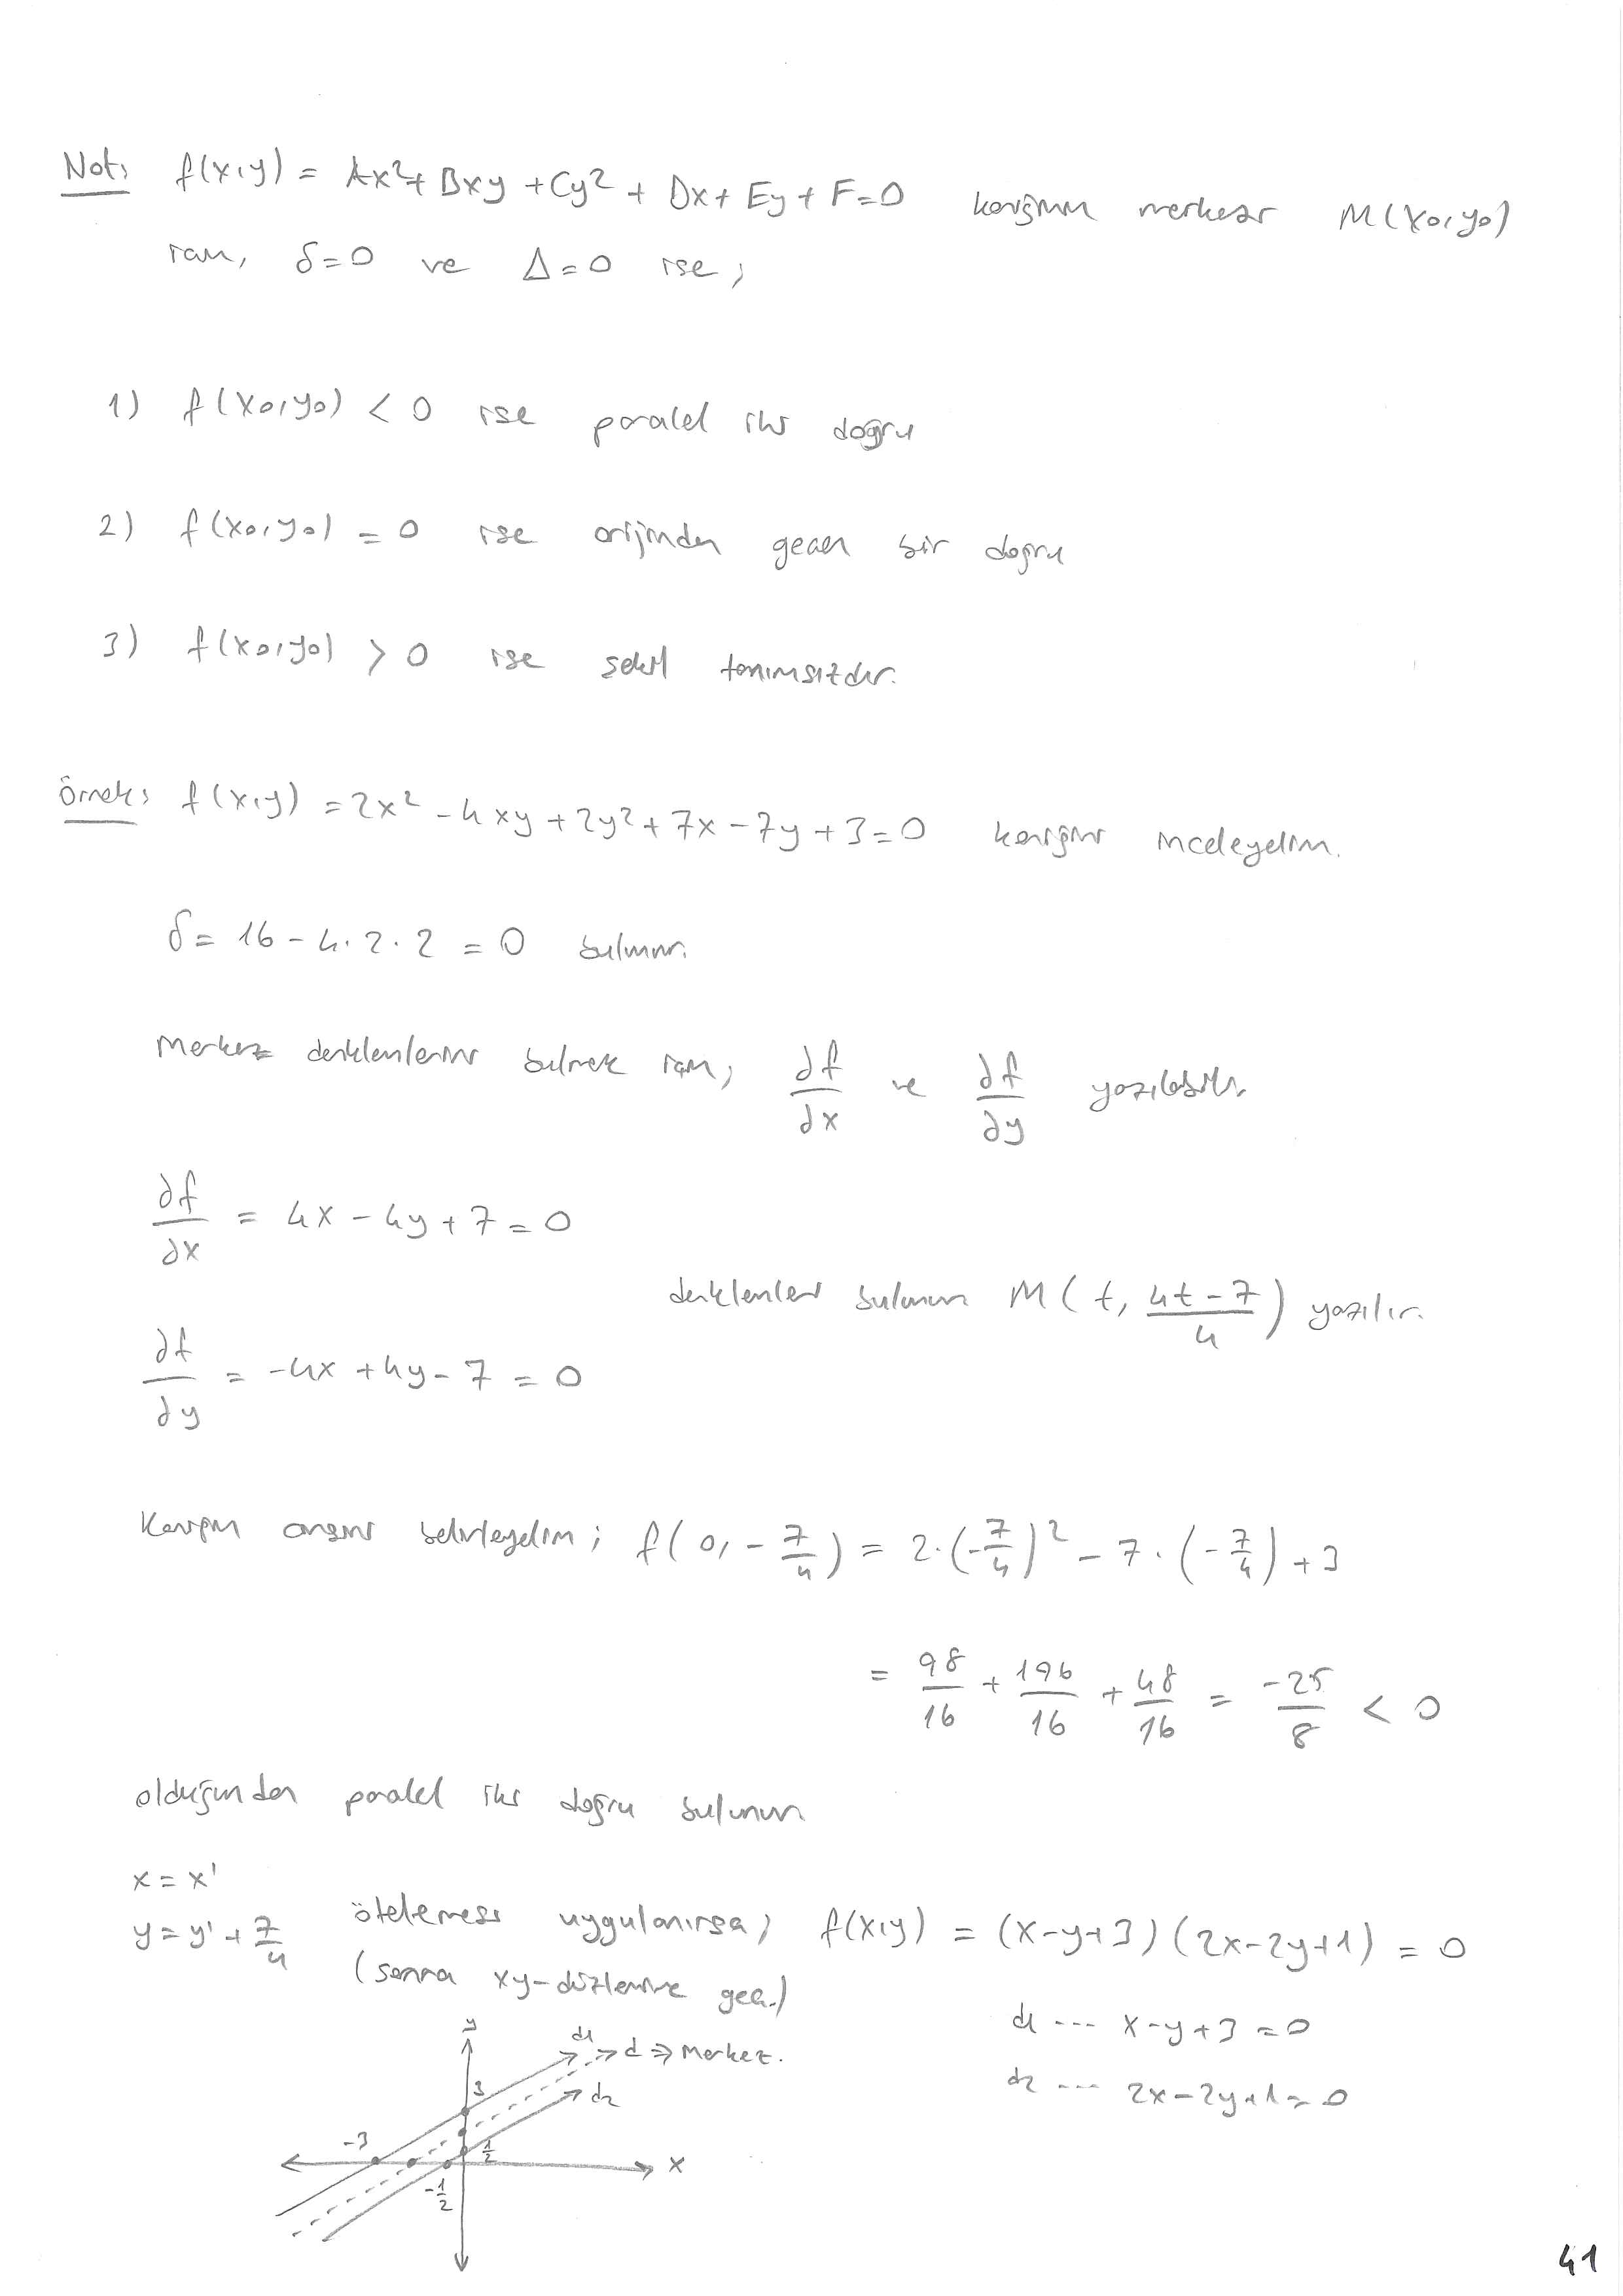 Not: f(x,y) = Ax² + Bxy + Cy² + Dx + Ey + F = 0 koniğinin merkezi M(x₀,y₀)
için, δ=0 ve Δ=0 ise;
1) f(x₀,y₀) < 0 ise paralel iki doğru
2) f(x₀,y₀) = 0 ise orijinden geçen bir doğru
3) f(x₀,y₀) > 0 ise şekil tanımsızdır.
Örnek: f(x,y) = 2x² - 4xy + 2y² + 7x - 7y + 3 = 0 koniğini inceleyelim.
δ = 16 - 4.2.2 = 0 bulunur.
Merkez denklemlerini bulmak için; ∂f/∂x ve ∂f/∂y yazılabilir.
∂f/∂x = 4x - 4y + 7 = 0
denklemleri bulunur M(t, (4t-7)/4) yazılır.
∂f/∂y = -4x + 4y - 7 = 0
Koniğin cinsini belirleyelim; f(0, -7/4) = 2.(-7/4)² - 7.(-7/4) + 3
= 98/16 + 196/16 + 48/16 = -25/8 < 0
olduğundan paralel iki doğru bulunur
x = x'
y = y' + 7/4 ötelemesi uygulanırsa; f(x,y) = (x-y+3)(2x-2y+1) = 0
(sonra xy-düzlemine geç.)
d1 --- x-y+3=0
d2 --- 2x-2y+1=0
y
d1
d => Merkez.
3
d2
-3
1/2
x
-1/2
41